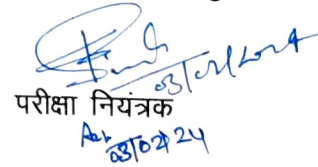 03/02/2024
परीक्षा नियंत्रक
03/02/24